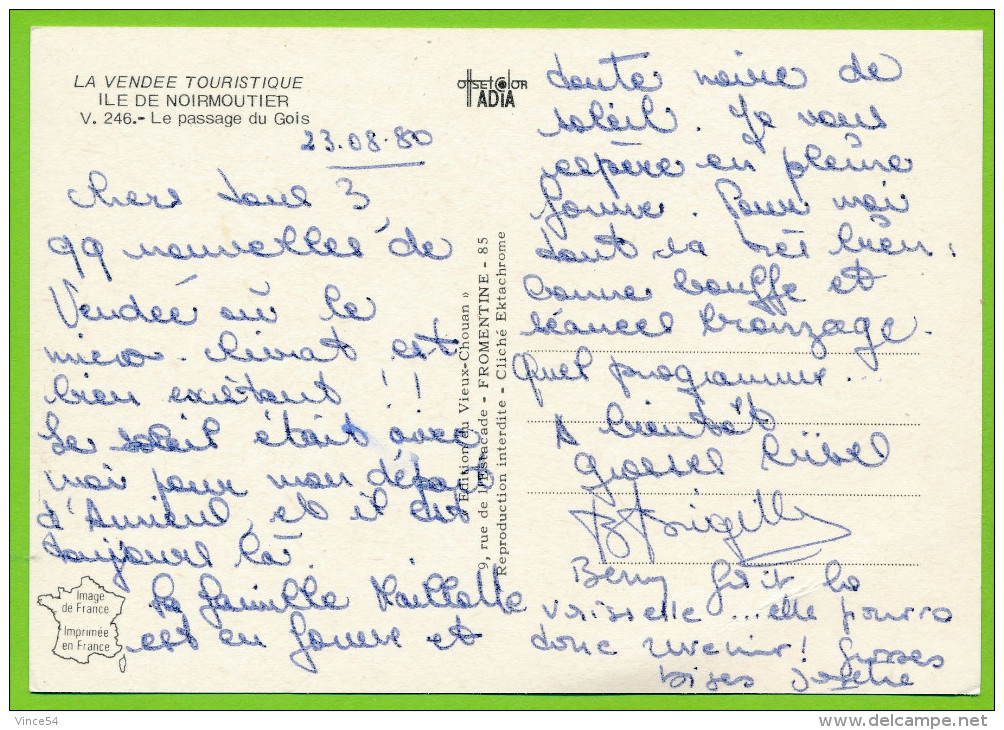 LA VENDEE TOURISTIQUE
ILE DE NOIRMOUTIER
V. 246.- Le passage du Gois
23.08.80
Chers tous 3,
qq nouvelles de
Vendée où le
micro-climat est
bien existant !!
Le soleil était avec
moi pour mon départ
d'Amiens, et il est
toujours là.
La famille
est en forme et
Image
de France
Imprimée
en France
offsetcolor
ADIA
« Edition du Vieux-Chouan »
9, rue de l'Estacade - FROMENTINE - 85
Reproduction interdite - Cliché Ektachrome
toute noire de
soleil. Je vous
espère en pleine
forme. Pour moi
tout va très bien :
bonne bouffe et
séances bronzage.
Quel programme...
A bientôt
Grosses bises
Brigitte
fait la
vaisselle ... elle pourra
donc revenir ! Grosses
bises
Vince54
http://www.delcampe.net